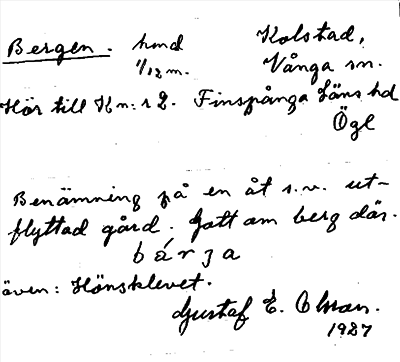 Bergen. hmd Kolstad,
1/12 m. Vånga sn.
Hör till Kn: r 2. Finspånga läns hd
Ögl
Benämning på en åt s.v. ut-
flyttad gård. Gott om berg där.
bárʒa
även: Hönsklevet.
Gustaf E. Olsson.
1927